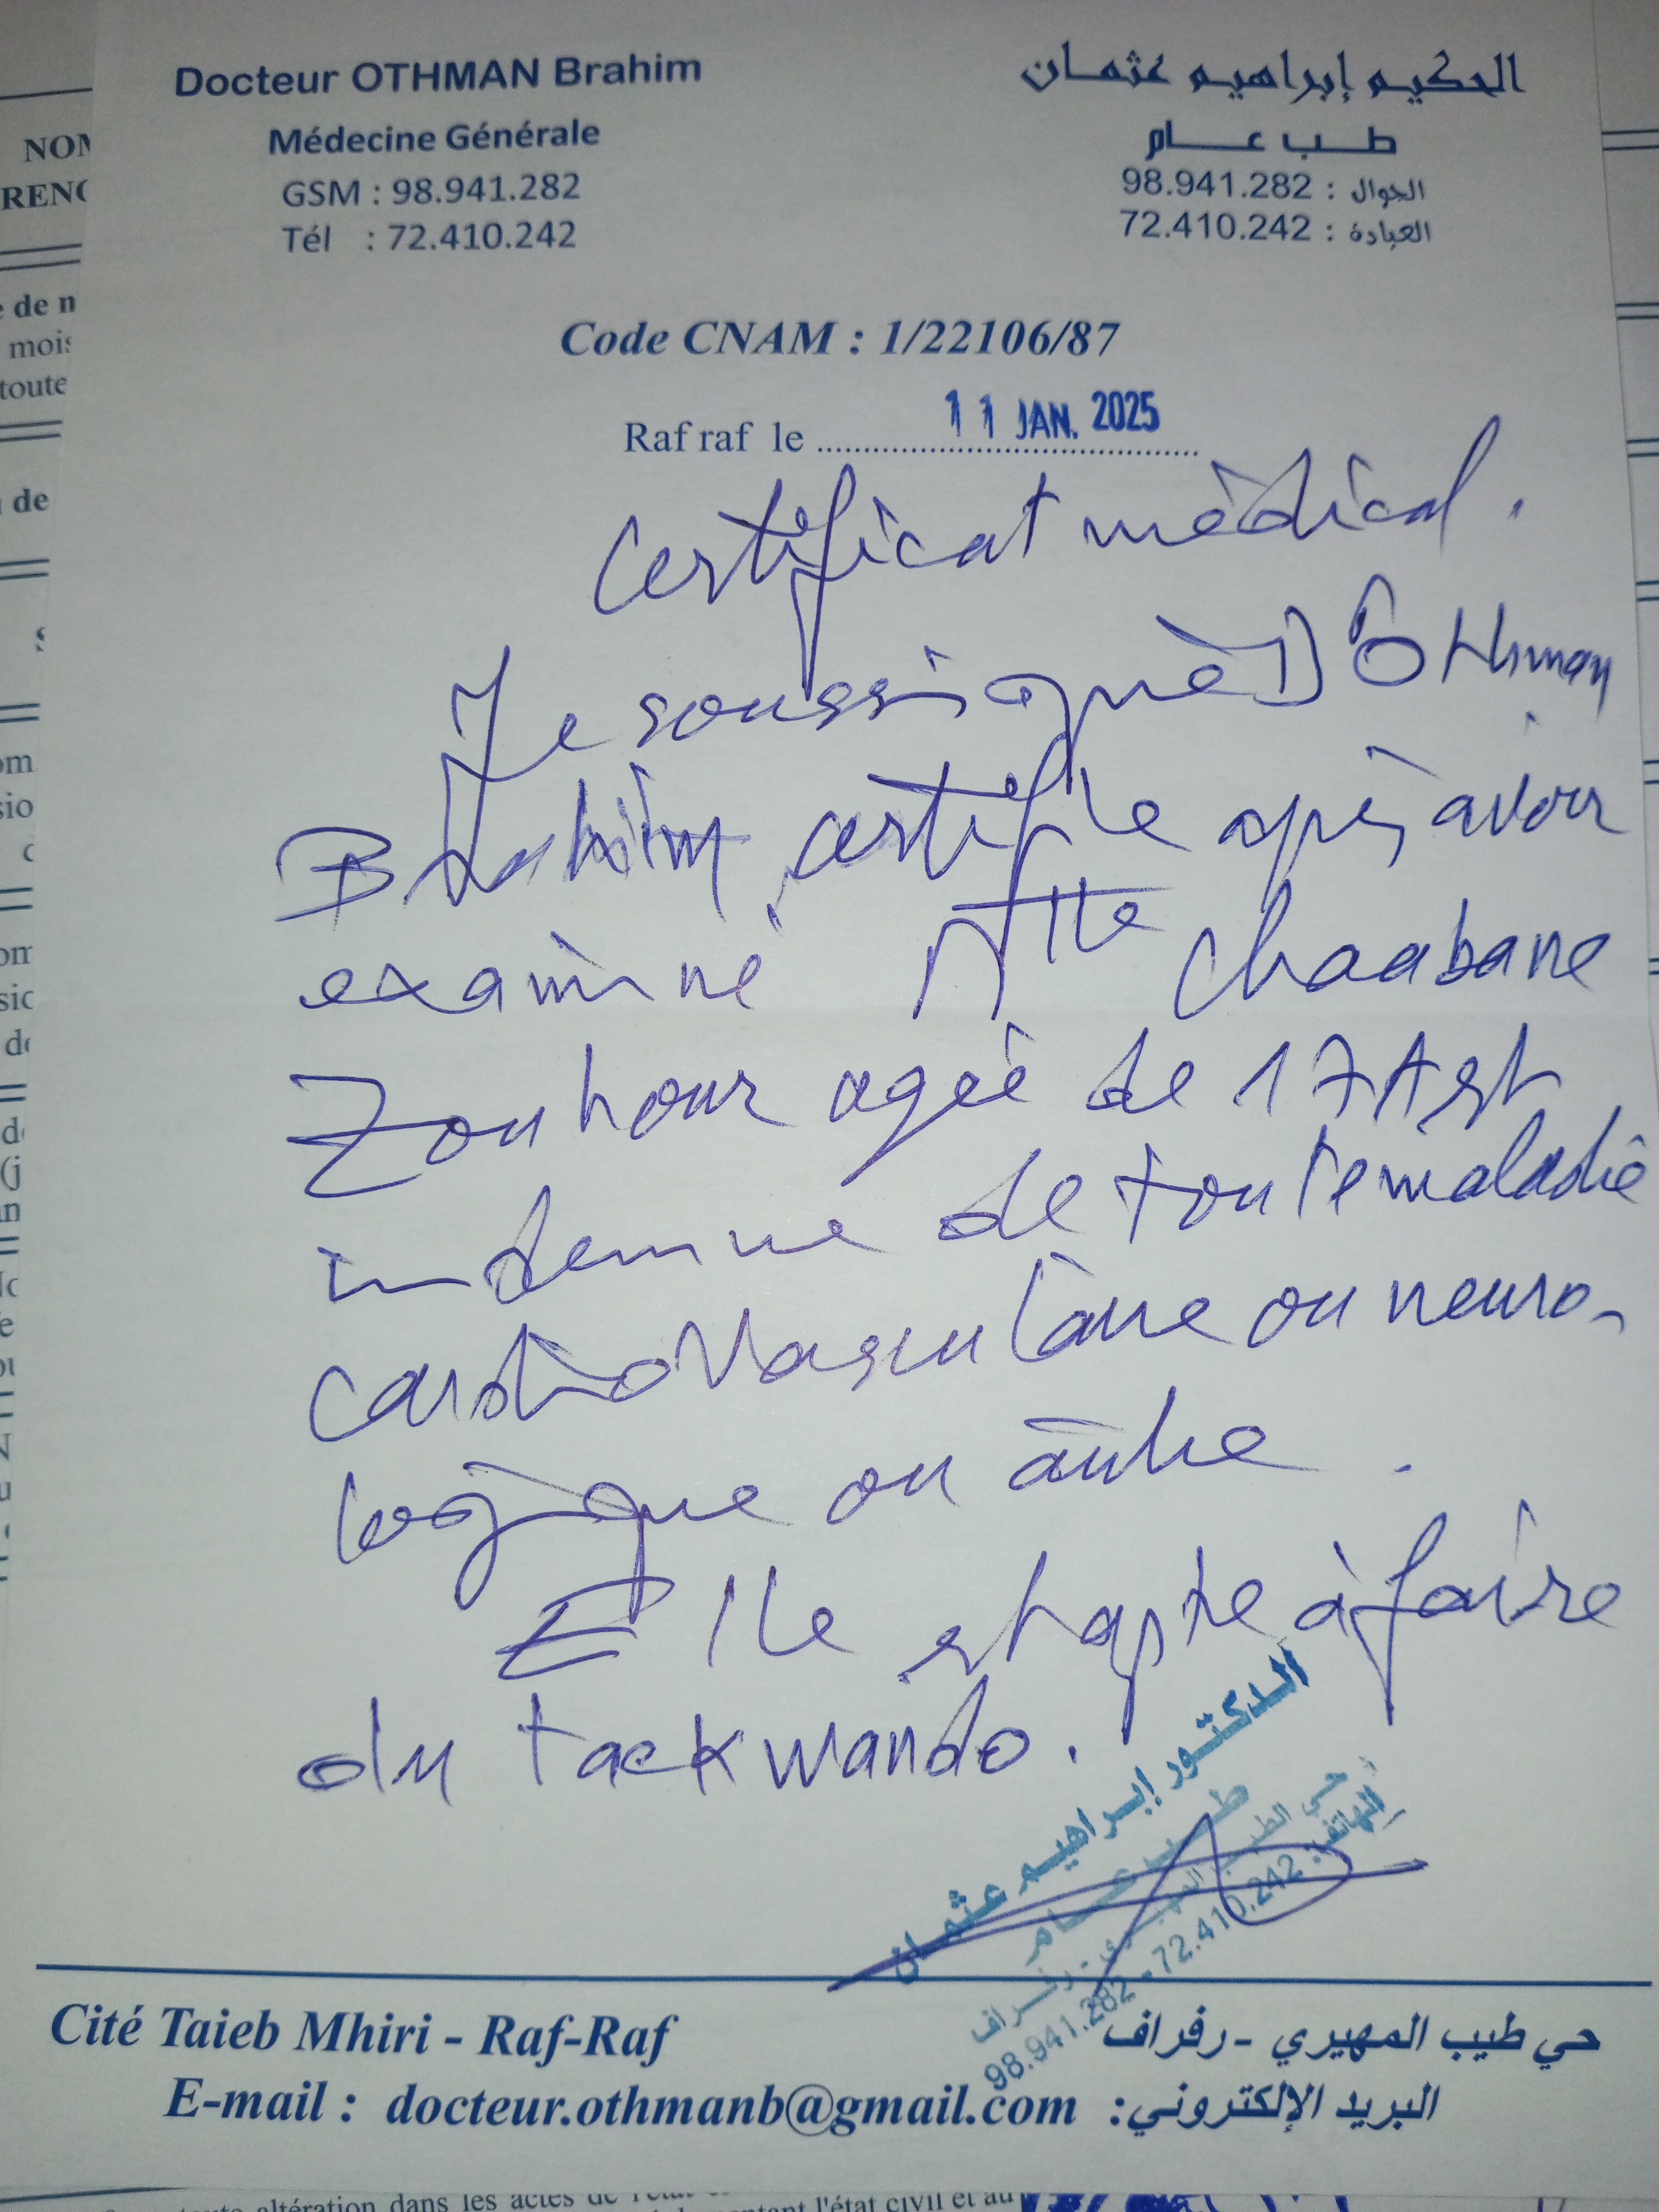 Docteur OTHMAN Brahim
Médecine Générale
GSM : 98.941.282
Tél : 72.410.242
الحكيم إبراهيم عثمان
طب عام
الجوال : 98.941.282
العيادة : 72.410.242
Code CNAM : 1/22106/87
Raf raf le 11 JAN. 2025
Certificat médical.
Je soussigné Dr Othman
Brahim, certifie après avoir
examiné Mlle Chaabane
Zouhour agée de 17A est
indemne de toute maladie
cardiovasculaire ou neuro-
logique ou autre.
Elle est apte à faire
du taekwando.
الدكتور إبراهيم عثمان
طب عام
حي الطيب المهيري - رفراف
الهاتف: 72.410.242 - 98.941.282
Cité Taieb Mhiri - Raf-Raf
حي طيب المهيري - رفراف
E-mail : docteur.othmanb@gmail.com البريد الإلكتروني: